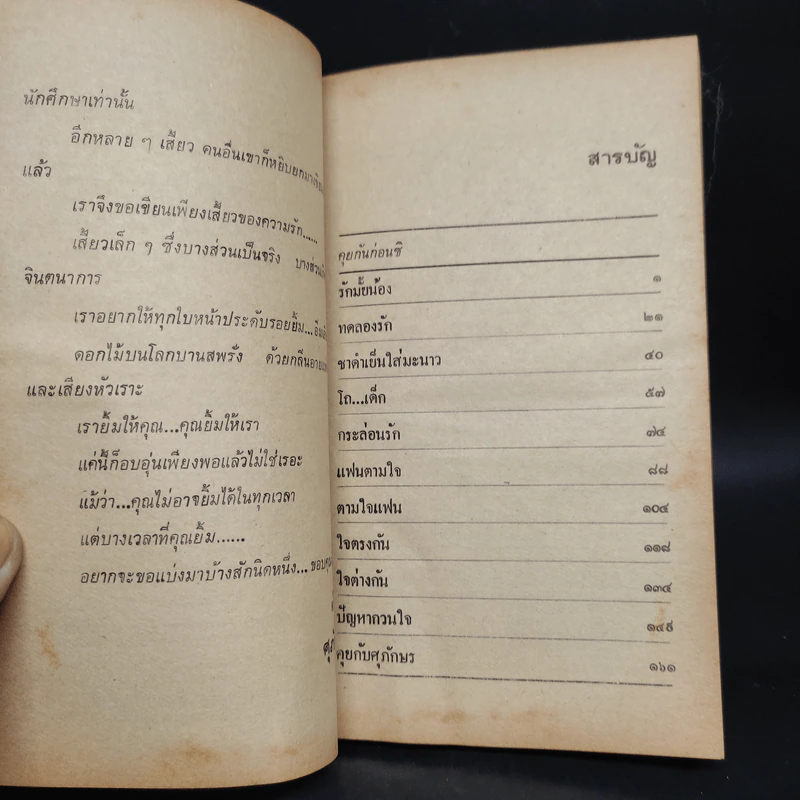 นักศึกษาเท่านั้น
อีกหลาย ๆ เสี้ยว คนอื่นเขาก็หยิบยกมาเขียน
แล้ว
เราจึงขอเขียนเพียงเสี้ยวของความรัก......
เสี้ยวเล็ก ๆ ซึ่งบางส่วนเป็นจริง บางส่วน
จินตนาการ
เราอยากให้ทุกใบหน้าประดับรอยยิ้ม...
ดอกไม้บนโลกบานสพรั่ง ด้วยกลิ่นอาย
และเสียงหัวเราะ
เรายิ้มให้คุณ...คุณยิ้มให้เรา
แค่นี้ก็อบอุ่นเพียงพอแล้วไม่ใช่เรอะ
แม้ว่า...คุณไม่อาจยิ้มได้ในทุกเวลา
แต่บางเวลาที่คุณยิ้ม......
อยากจะขอแบ่งมาบ้างสักนิดหนึ่ง...ขอบคุณ
สารบัญ
คุยกันก่อนซิ
รักมั้ยน้อง ๑
ทดลองรัก ๒๑
ชาดำเย็นใส่มะนาว ๔๐
โถ...เด็ก ๕๗
กระล่อนรัก ๗๔
แฟนตามใจ ๘๘
ตามใจแฟน ๑๐๔
ใจตรงกัน ๑๑๘
ใจต่างกัน ๑๓๔
ปัญหากวนใจ ๑๔๙
คุยกับศุภักษร ๑๖๑